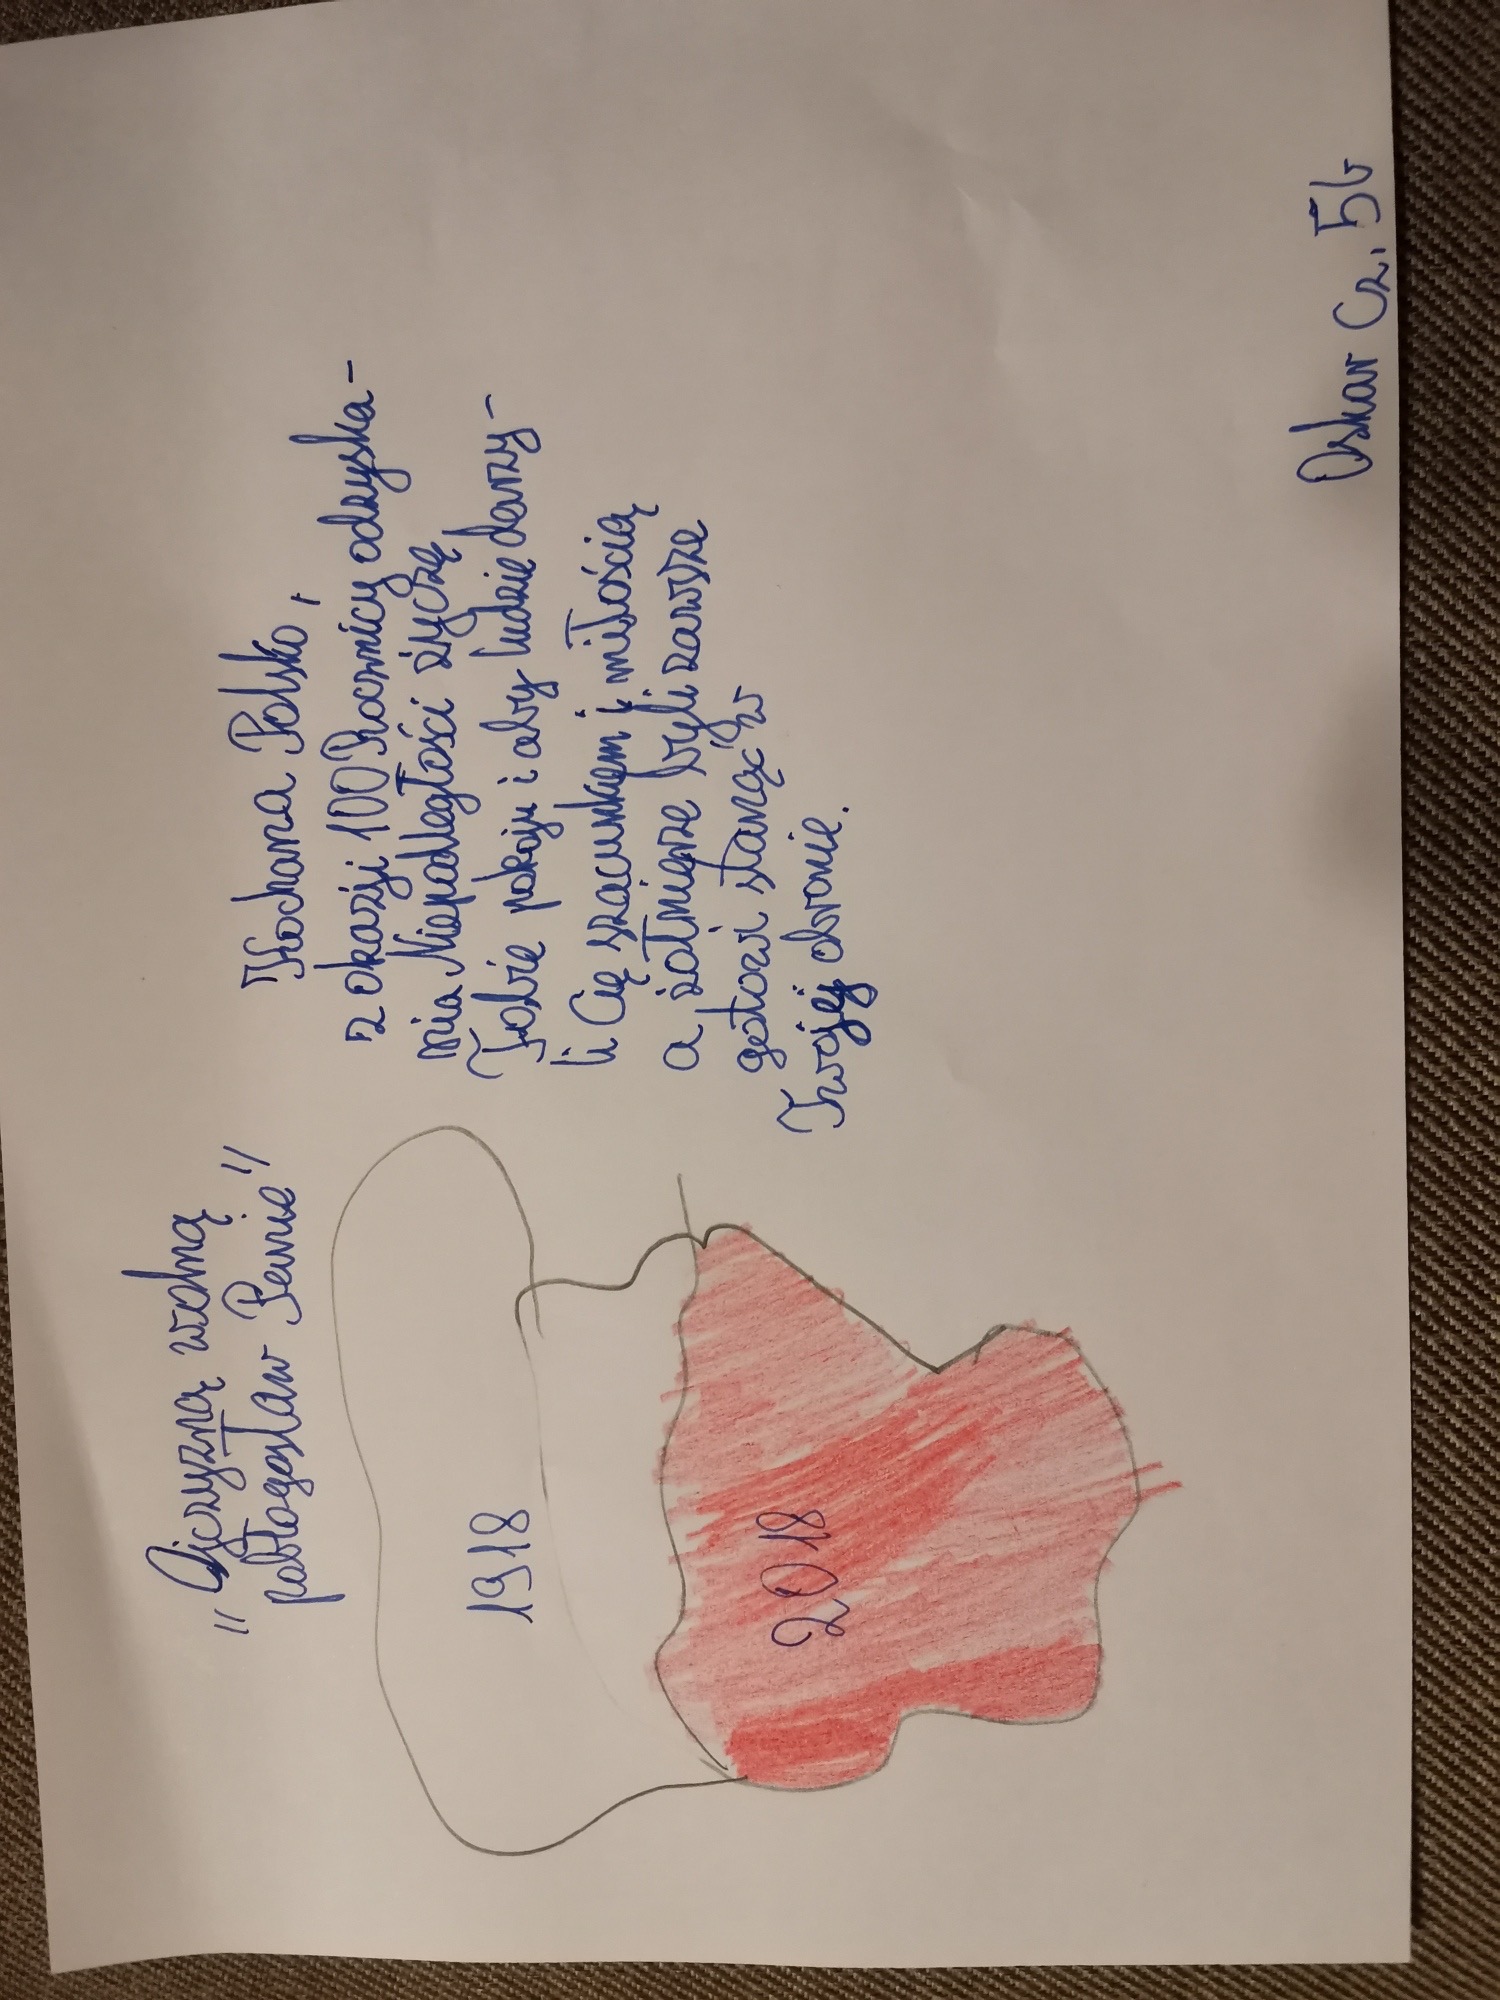 "Ojczyznę wolną
pobłogosław Panie"
1918
2018
Kochana Polsko,
z okazji 100 Rocznicy odzyska-
nia Niepodległości życzę
Tobie pokoju i aby ludzie darzy-
li Cię szacunkiem i miłością
a żołnierze byli zawsze
gotowi stanąć w
Twojej obronie.
Oskar Cz. 5b